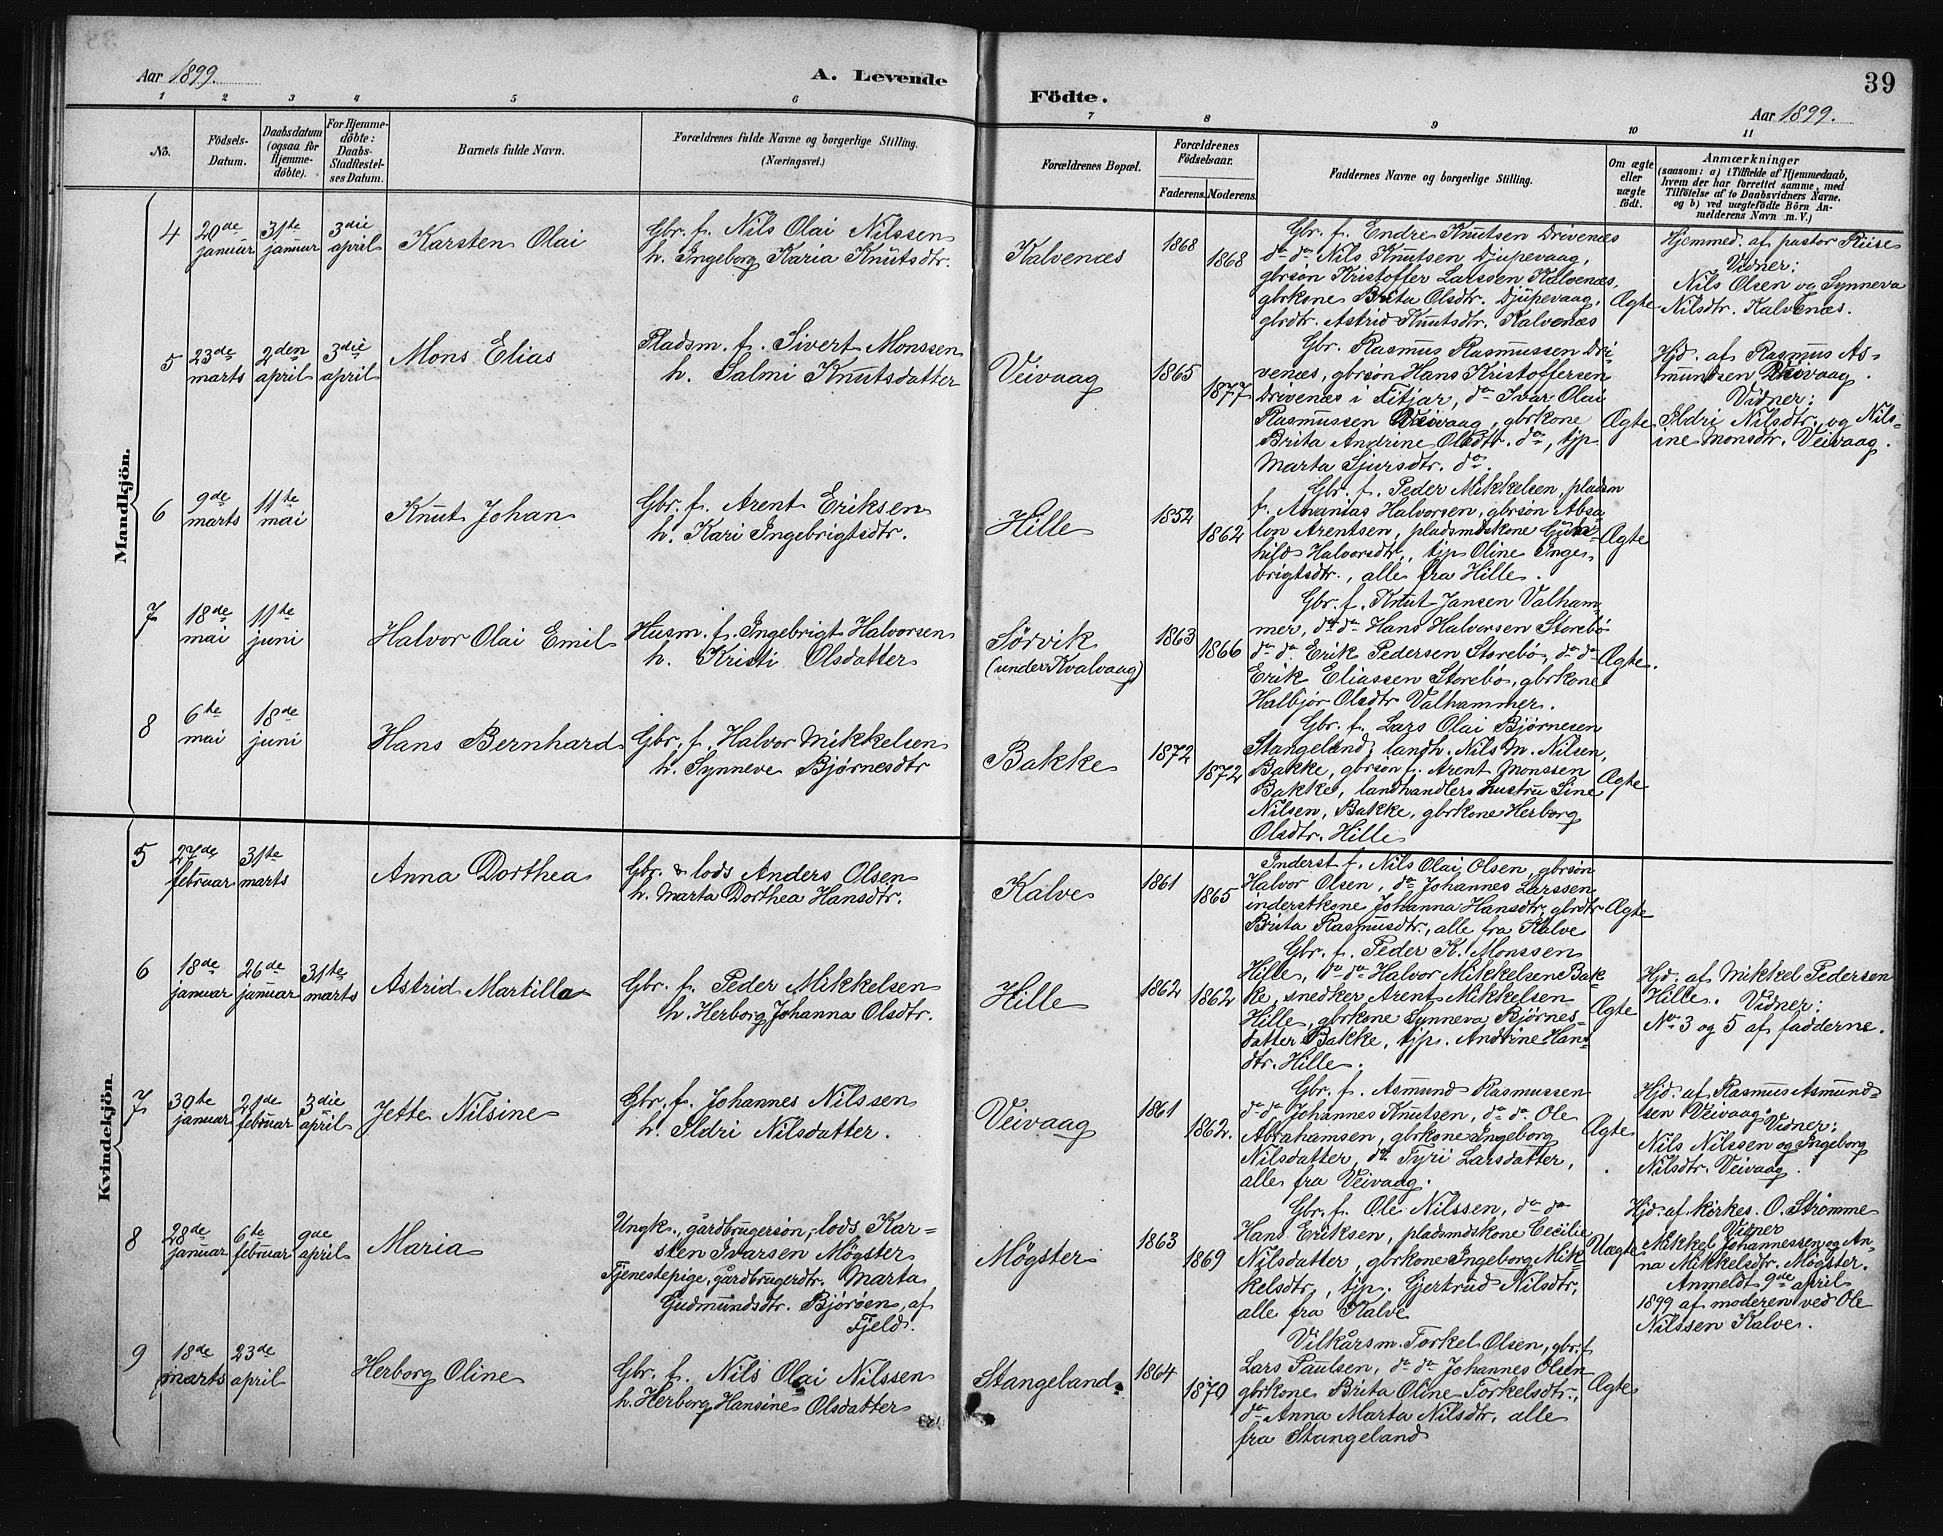 Aar 1899.
A. Levende
Födte.
39
Aar 1899.
1 2 3 4 5 6 7 8 9 10 11
No.
Födsels-
Datum.
Daabsdatum
(ogsaa for
Hjemme-
döbte).
For Hjemme-
döbte:
Daabs-
Stadfæstel-
ses Datum.
Barnets fulde Navn.
Forældrenes fulde Navne og borgerlige Stilling.
(Næringsvei.)
Forældrenes Bopæl.
Forældrenes
Födselsaar.
Faderens. Moderens.
Faddernes Navne og borgerlige Stilling.
Om ægte
eller
uægte
födt.
Anmærkninger
(saasom: a) i Tilfælde af Hjemmedaab,
hvem der har forrettet samme, med
Tilföielse af to Daabsvidners Navne.
og b) ved uægtefödte Börn An-
melderens Navn m. V.)
Mandkjön.
4
20de
januar
31te
januar
3die
april
Karsten Olai
Gbr. f. Nils Olai Nilssen
h. Ingeborg Karia Knutsdtr.
Kalvenæs
1868
1868
Gbr. f. Endre Knutsen Drivenæs
da da Nils Knutsen Djupevaag,
gbrsön Kristoffer Larssen Kalvenæs,
gbrkone Brita Olsdtr. Djupevaag,
gbrdtr. Astrid Knutsdtr. Kalvenæs
Ægte
Hjemmed. af pastor Riise
Vidner:
Nils Olsen og Synneva
Nilsdtr. Kalvenæs.
5
23de
marts
2den
april
3die
april
Mons Elias
Pladsm. f. Sivert Monssen
h. Salmi Knutsdatter
Veivaag
1865
1877
Gbr. Rasmus Rasmussen Dri-
venæs, gbrsön Hans Kristoffersen
Drivenæs i Fitjar, da Ivar Olai
Rasmussen Veivaag, gbrkone
Brita Andrine Olsdtr. da, tjp.
Marta Sjursdtr. da.
Ægte
Hjd. af Rasmus As-
mundsen Veivaag.
Vidner:
Ildri Nilsdtr. og Nils-
ine Monsdtr. Veivaag.
6
9de
marts
11te
mai
Knut Johan
Gbr. f. Arent Eriksen
h. Kari Ingebrigtsdtr.
Hille
1852
1862
Gbr. f. Peder Mikkelsen, pladsm
f. Ananias Halvorsen, gbrsön Absa-
lon Arentsen, pladsmdskone Gun-
hild Halvorsdtr., tjp Oline Inge-
brigtsdtr., alle fra Hille.
Ægte
7
18de
mai
11te
juni
Halvor Olai Emil
Husm. f. Ingebrigt Halvorsen
h. Kristi Olsdatter
Sørvik
(under Kvalvaag)
1863
1866
Gbr. f. Knut Jansen Valham-
mer, da da Hans Halvorsen Storebö
da da Erik Pedersen Storebö, da da
Erik Eliassen Storebö, gbrkone
Halbjor Olsdtr Valhammer.
Ægte.
8
6te
mai
18de
juni
Hans Bernhard
Gbr. f. Halvor Mikkelsen
h. Synneve Bjørnesdtr
Bakke
1872
1872
Gbr. f. Lars Olai Bjørnesen
Stangeland, landh. Nils M. Nilsen,
Bakke, gbrsön f. Arent Monssen
Bakke, landhandlers hustru Sine
Nilsen, Bakke, gbrkone Herborg
Olsdtr. Hille
Ægte
Kvindekjön.
5
27de
februar
31te
marts
Anna Dorthea
Gbr. & lods Anders Olsen
h. Marta Dorthea Hansdtr.
Kalve
1861
1865
Inderst f. Nils Olai Olsen, gbrsön
Halvor Olsen, da Johannes Larssen
inderstkone Johanna Hansdtr, gbrdtr
Brita Rasmusdtr, alle fra Kalve
Ægte
6
18de
januar
26de
januar
31te
marts
Astrid Martilla
Gbr. f. Peder Mikkelsen
h. Herborg Johanna Olsdtr.
Hille
1862
1862
Gbr. f. Peder K. Monssen
Hille, da da Halvor Mikkelsen Bak-
ke, snedker Arent Mikkelsen
Hille, gbrkone Synneva Bjørnes-
datter Bakke, tjp. Andrine Han-
dtr. Hille.
Ægte
Hjd. af Mikkel Pedersen
Hille. Vidner:
No 3 og 5 af fadderne.
7
30te
januar
21de
februar
3die
april
Jette Nilsine
Gbr. f. Johannes Nilssen
h. Ildri Nilsdatter.
Veivaag
1861
1862.
Gbr. f. Asmund Rasmussen
da da Johannes Knutsen, da da Ole
Abrahamsen, gbrkone Ingeborg
Nilsdatter, da Tyri Larsdatter,
alle fra Veivaag.
Ægte
Hjd. af Rasmus Asmund-
sen Veivaag. Vidner:
Nils Nilssen og Ingeborg
Nilsdtr. Veivaag.
8
28de
januar
6te
februar
9de
april
Maria
Ungk., gårdbrugersön, lods Kar-
sten Ivarsen Møgster
Tjenestepige, gårdbrugerdtr. Marta
Gudmundsdtr. Bjorøen, af
Fjeld.
Møgster
1863
1869
Gbr. f. Ole Nilssen, da da
Hans Eriksen, pladsmdskone Cecilie
Nilsdatter, gbrkone Ingeborg Mik-
kelsdtr, tjp. Gjertrud Nilsdtr,
alle fra Kalve
Uægte
Hjd. af kirkes. O. Strømme
Vidner
Mikkel Johannessen og An-
na Mikkelsdtr. Møgster.
Anmeldt 9de april
1899 af moderen ved Ole
Nilssen Kalve.
9
18de
marts
23de
april
Herborg Oline
Gbr. f. Nils Olai Nilssen
h. Herborg Hansine Olsdatter
Stangeland.
1864
1870
Vilkårsm. Torkel Olsen, gbr. f
Lars Paulsen, da da Johannes Olsen
gbrkone Brita Oline Torkelsdtr.,
da Anna Marta Nilsdtr. alle
fra Stangeland
Ægte